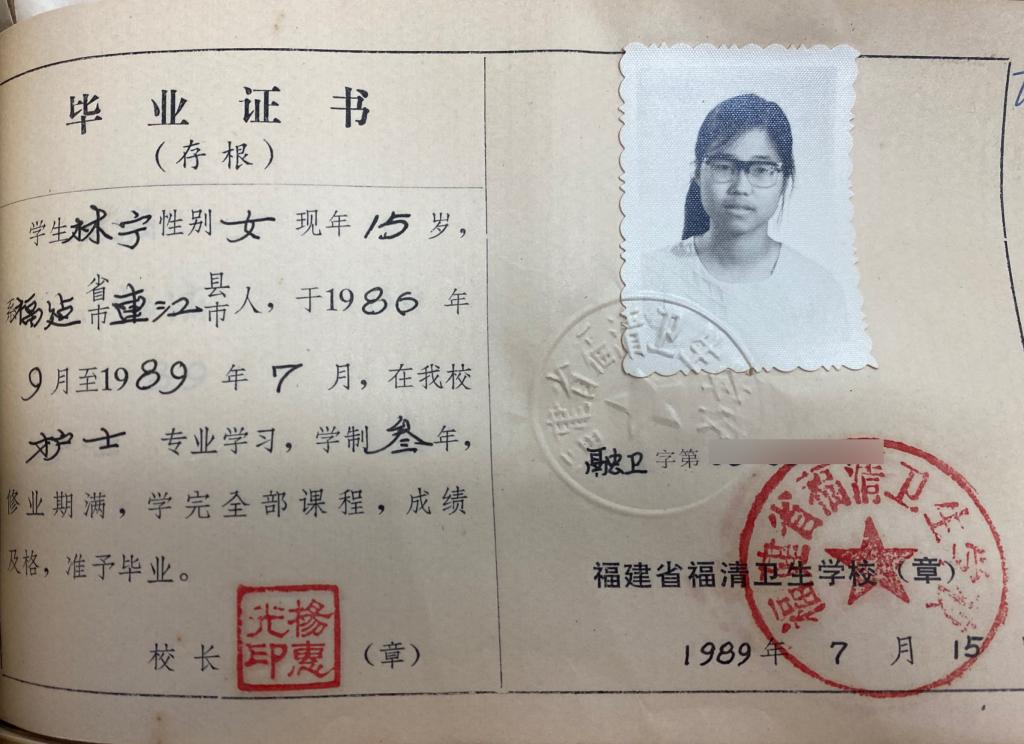 毕业证书
（存根）
学生林宁性别女 现年 15 岁，
系福建省市连江县市人，于1986 年
9月至1989 年 7 月，在我校
护士 专业学习，学制叁年，
修业期满，学完全部课程，成绩
及格，准予毕业。
校长 杨惠光印 （章）
福建省福清卫生学校
融卫字第
福建省福清卫生学校（章）
福建省福清卫生学校
1989年 7 月 15